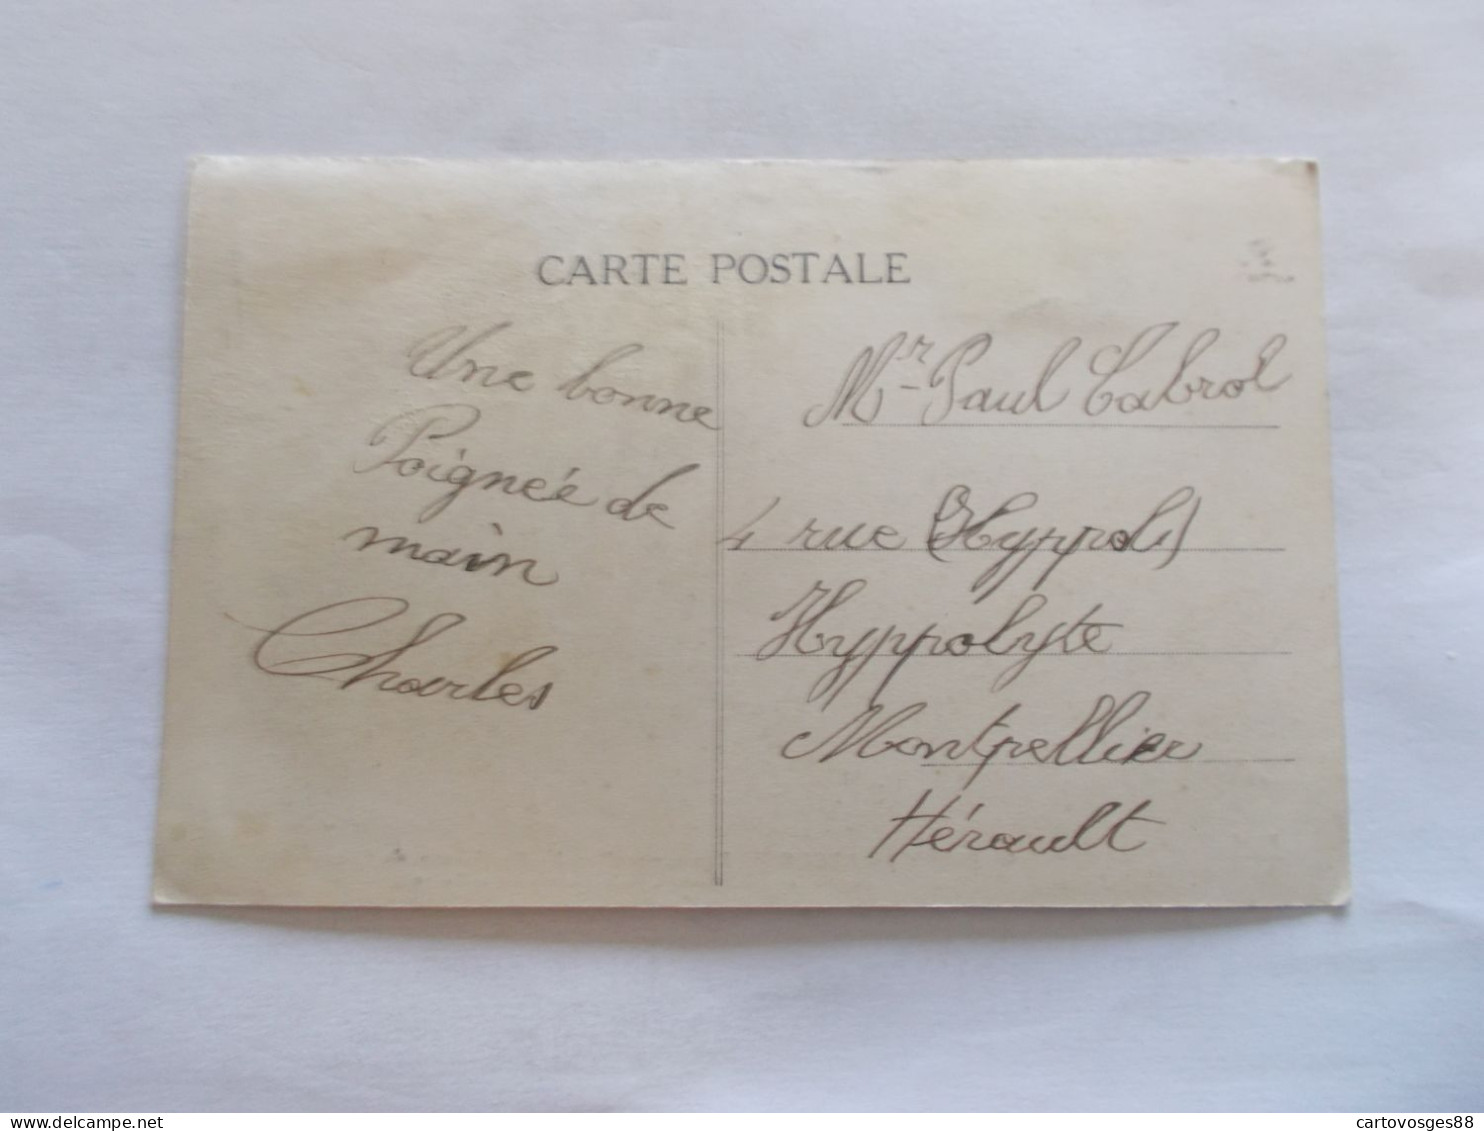 CARTE POSTALE
Une bonne
Poignée de
main
Charles
Mr Paul Cabrol
4 rue (Hyppol)
Hyppolyte
Montpellier
Hérault
delcampe.net
cartovosges88